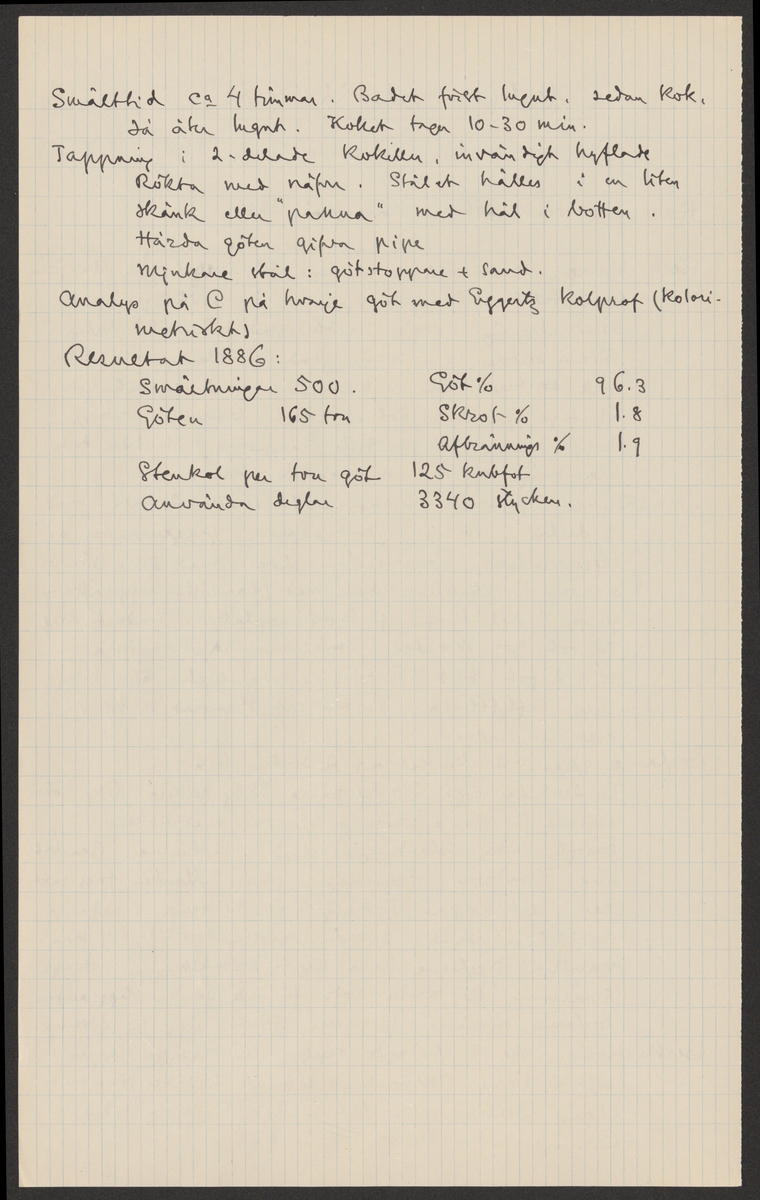 Smälttid ca 4 timmar. Badet först lugnt, sedan kok,
då åter lugnt. Koket tager 10-30 min.
Tappning i 2-delade kokiller, invändigt hyflade
Rökta med näfver. Stålet hålles i en liten
skänk eller "panna" med hål i botten.
Hårda göten gifva pipe
Mjukare stål: götstoppare + sand.
Analys på C på hvarje göt med Eggertz kolprof (kolori-
metriskt)
Resultat 1886:
Smältningar 500. Göt % 96.3
Göten 165 ton Skrot % 1.8
Afbrännings % 1.9
Stenkol per ton göt 125 kubfot
Använda deglar 3340 stycken.